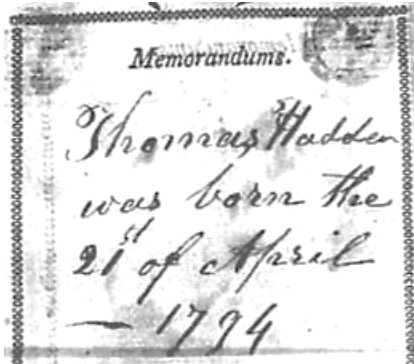 Memorandums.
Thomas Hadden
was born the
21st of April
— 1794